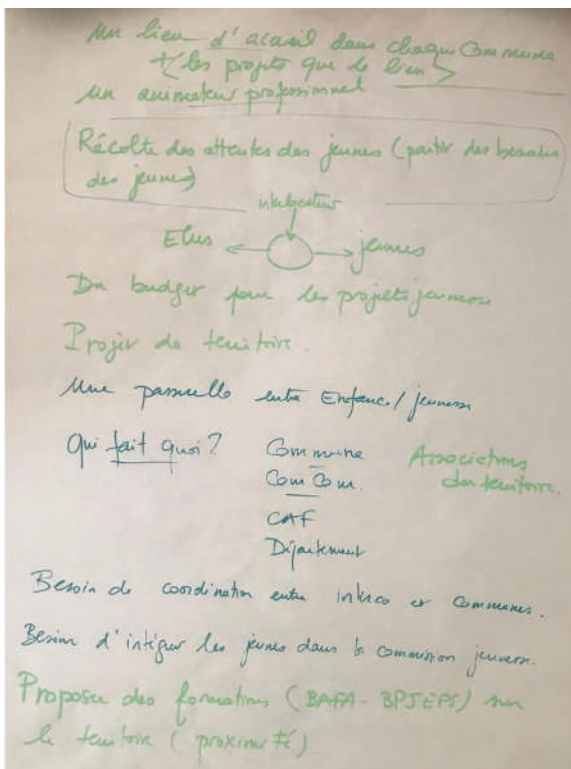 Un lieu d'accueil dans chaque Commune
+ < les projets que le lieu >
un animateur professionnel
Récolte des attentes des jeunes (partir des besoins
des jeunes)
interlocuteur
Elus ← → jeunes
Du budget pour les projets jeunesse
Projet de territoire.
Une passerelle entre Enfance / jeunesse
Qui fait quoi ? Commune Associations
Com Com. du territoire.
CAF
Département
Besoin de coordination entre interco et communes.
Besoin d'intégrer les jeunes dans la commission jeunesse.
Proposer des formations (BAFA - BPJEPS) sur
le territoire (proximité)